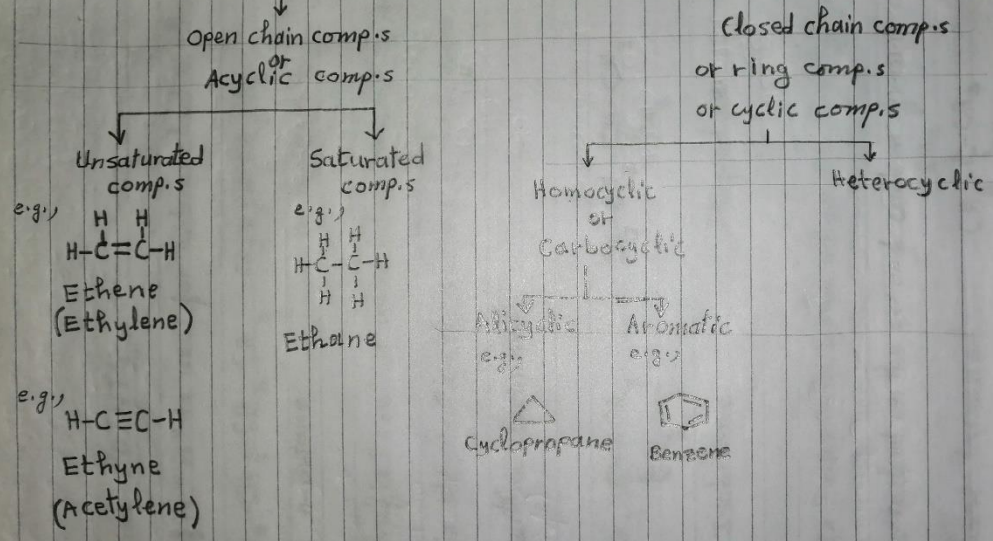 Open chain comp.s
or
Acyclic comp.s
Unsaturated
comp.s
e.g.,
H H
H-C=C-H
Ethene
(Ethylene)
e.g.,
H-C≡C-H
Ethyne
(Acetylene)
Saturated
comp.s
e.g.,
H H
H-C-C-H
H H
Ethane
Closed chain comp.s
or ring comp.s
or cyclic comp.s
Homocyclic
or
Carbocyclic
Alicyclic
e.g.,
Cyclopropane
Aromatic
e.g.,
Benzene
Heterocyclic